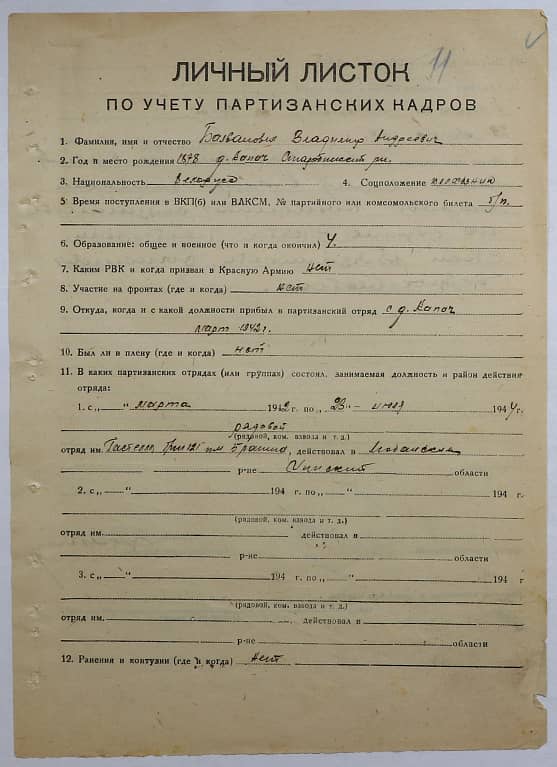 11
ЛИЧНЫЙ ЛИСТОК
ПО УЧЕТУ ПАРТИЗАНСКИХ КАДРОВ
1. Фамилия, имя и отчество Владимир Андреевич
2. Год и место рождения 1878 д. Капач Старобинский рн.
3. Национальность Белорус 4. Соцположение
5. Время поступления в ВКП(б) или ВЛКСМ, № партийного или комсомольского билета б/п.
6. Образование: общее и военное (что и когда окончил) 4.
7. Каким РВК и когда призван в Красную Армию нет
8. Участие на фронтах (где и когда) нет
9. Откуда, когда и с какой должности прибыл в партизанский отряд с д. Капач
март 1942 г.
10. Был ли в плену (где и когда) нет
11. В каких партизанских отрядах (или группах) состоял, занимаемая должность и район действия
отряда:
1. с „ “ марта 1942 г. по „23“ июля 1944 г.
рядовой
(рядовой, ком. взвода и т. д.)
отряд им. Гастелло 121 им Брагина, действовал в
р-не области
2. с „ “ 194 г. по „ “ 194 г.
(рядовой, ком. взвода и т. д.)
отряд им. действовал в
р-не области
3. с „ “ 194 г. по „ “ 194 г
(рядовой, ком. взвода и т. д.)
отряд им. действовал в
р-не области
12. Ранения и контузии (где и когда) нет